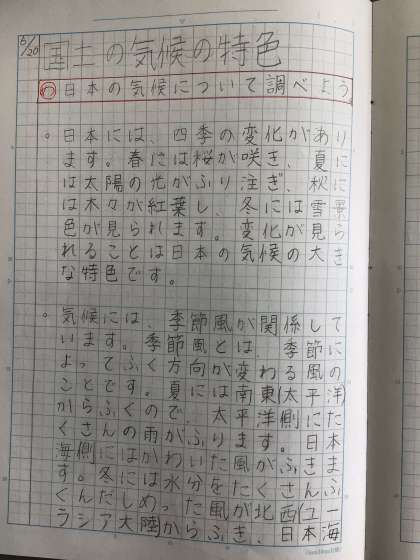 5/20
国土の気候の特色
め 日本の気候について調べよう
。日本には、四季の変化があり
ます。春には桜が咲き、夏に
は太陽の光がふり注ぎ、秋に
は木々が紅葉し、冬には雪景
色が見られます。変化が見ら
れることは日本の気候の大き
な特色です。
。気候には、季節風が関係して
います。季節風とは、季節に
よってふく方向が変わる風の
ことです。夏には南東(太平洋)
からふくので、太平洋側にた
くさんの雨がふります。日本
海側にはかわいた風がふきま
す。冬には水分をたくさんふ
くんだしめった風が北西(ユー
ラシア大陸からふき、日本海